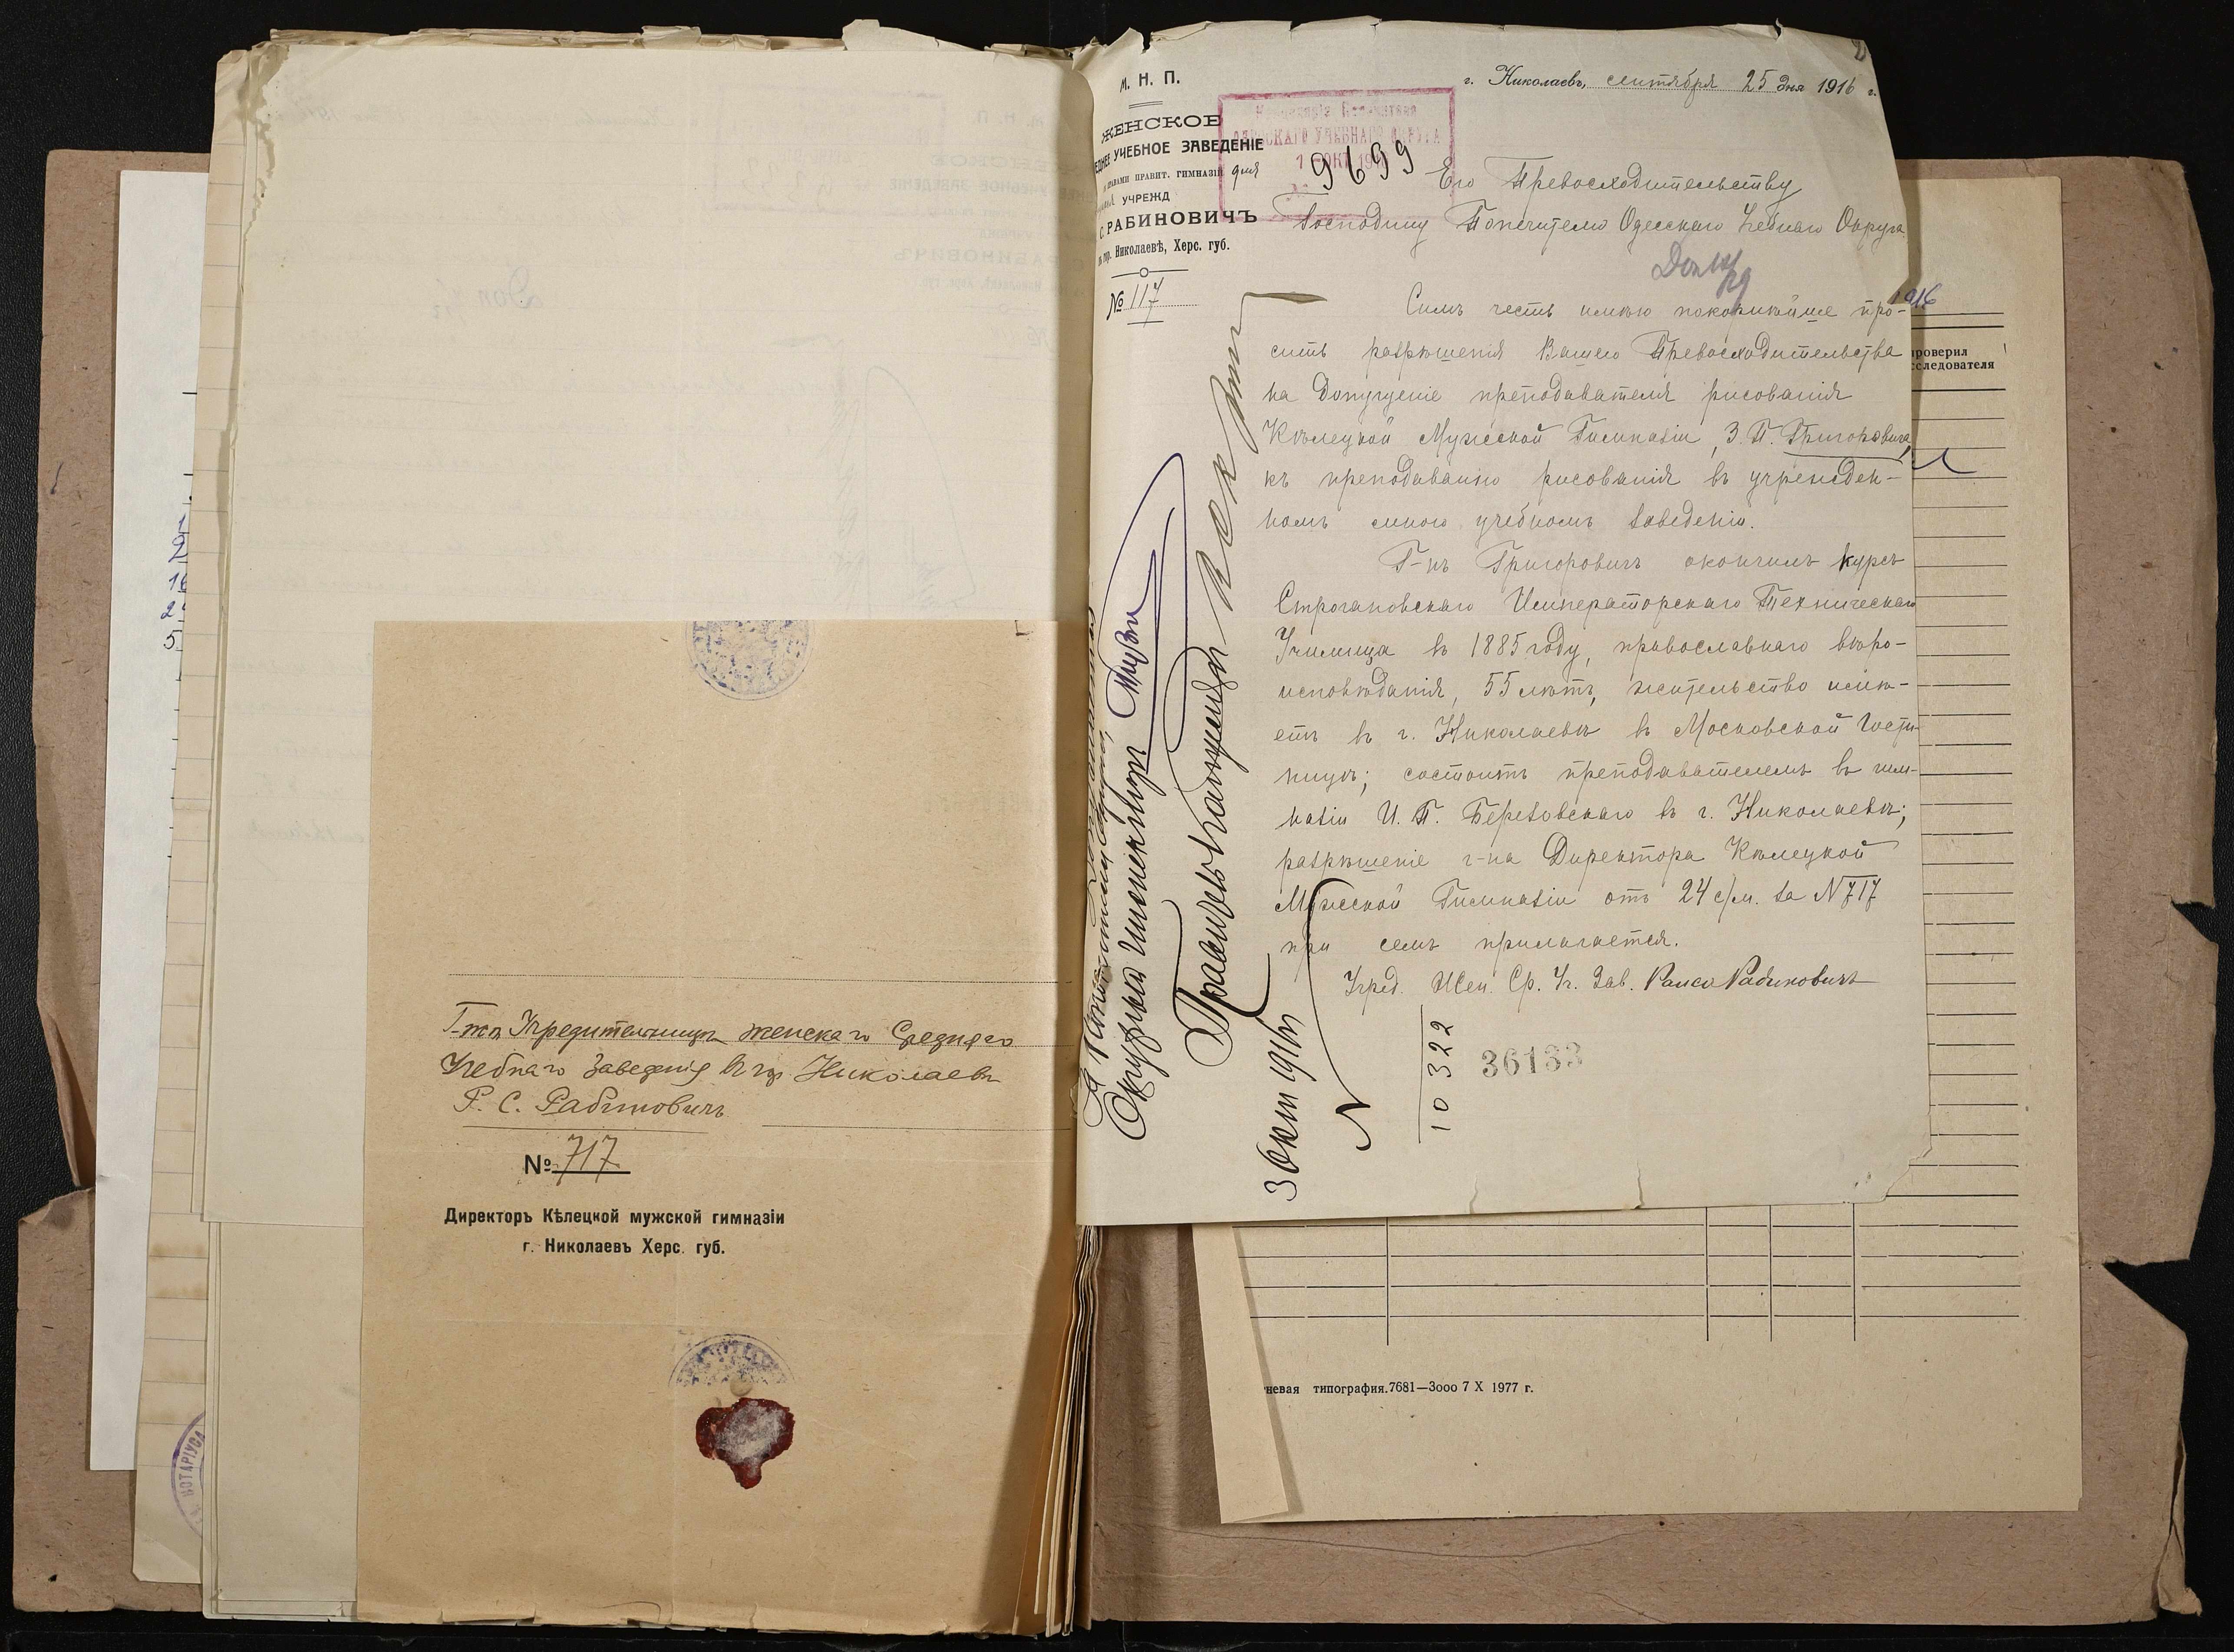 Г-жѣ Учредительницѣ женскаго Средняго
Учебнаго Заведенія въ гор. Николаевѣ
Р. С. Рабиновичъ
№ 717
Директоръ Кѣлецкой мужской гимназіи
г. Николаевъ Херс. губ.
НОТАРІУСА
М. Н. П.
ЖЕНСКОЕ
УЧЕБНОЕ ЗАВЕДЕНІЕ
ПРАВАМИ ПРАВИТ. ГИМНАЗІЙ для
УЧРЕЖД
С. РАБИНОВИЧЪ
гор. Николаевѣ, Херс. губ.
№ 117
г. Николаевъ, сентября 25 дня 1916 г.
УЧЕБНАГО ОКРУГА
1 ОКТ 19
9699
Его Превосходительству
Господину Попечителю Одесскаго Учебнаго Округа
Симъ честь имѣю покорнѣйше про-
сить разрѣшенія Вашего Превосходительства
на допущеніе преподавателя рисованія
Кѣлецкой Мужской Гимназіи, З. П. Григоровича,
къ преподаванію рисованія въ учрежден-
номъ мною учебномъ заведеніи.
Г-нъ Григоровичъ окончилъ курсъ
Строгановскаго Императорскаго Техническаго
Училища въ 1885 году, православнаго вѣро-
исповѣданія, 55 лѣтъ, жительство имѣ-
етъ въ г. Николаевѣ въ Московской Гости-
ницѣ; состоитъ преподавателемъ въ гим-
назіи И. П. Березовскаго въ г. Николаевѣ;
разрѣшеніе г-на Директора Кѣлецкой
Мужской Гимназіи отъ 24 с/м. за N 717
при семъ прилагается.
Учред. Жен. Ср. Уч. Зав. Раиса Рабиновичъ
Окружной Инспекторъ
Правитель Канцеляріи
3 Окт 1916
N
10322
36133
916
проверил
исследователя
типография.7681—3000 7 X 1977 г.